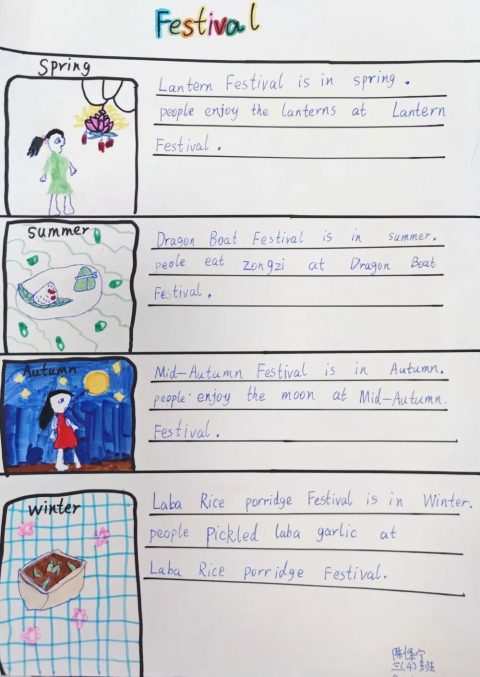 Festival
Spring
Lantern Festival is in spring.
people enjoy the lanterns at Lantern
Festival.
summer
Dragon Boat Festival is in summer.
people eat zongzi at Dragon Boat
Festival.
Autumn
Mid-Autumn Festival is in Autumn.
people enjoy the moon at Mid-Autumn.
Festival.
winter
Laba Rice porridge Festival is in Winter.
people Pickled laba garlic at
Laba Rice porridge Festival.
三(4)班